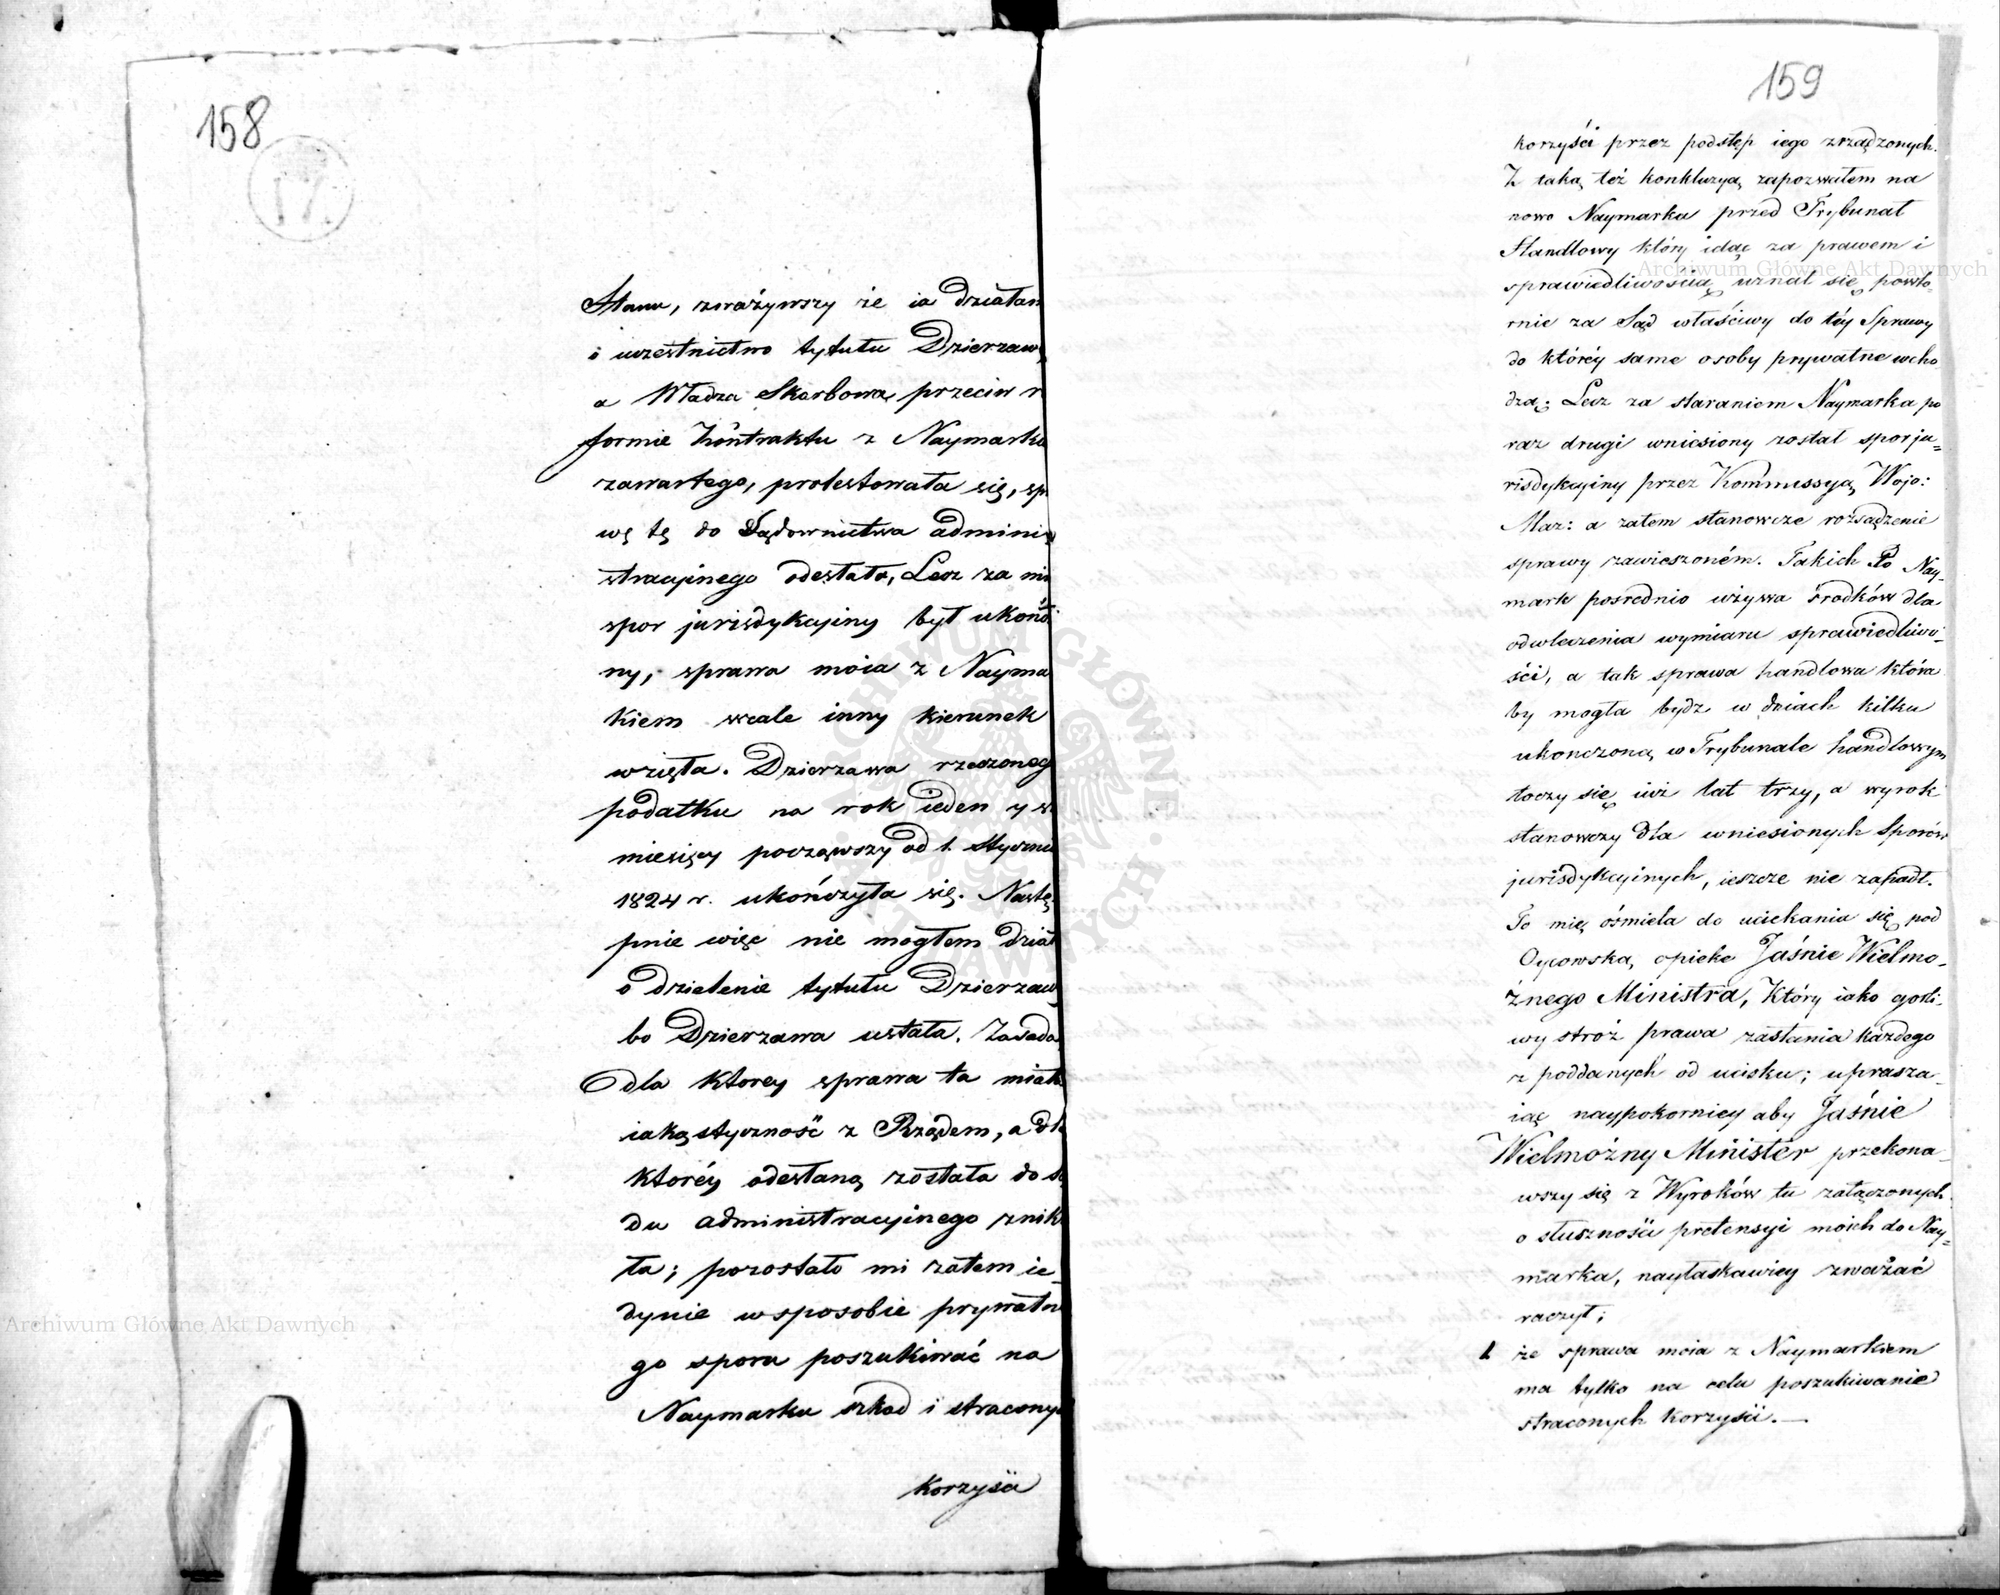 158
17.
Stanu, zważywszy że ia działam
o uczestnictwo tytułu Dzierzaw
a Władza Skarbowa przeciw
formie kontraktu z Naymarkie
zawartego, protestowała się, sp
wę tę do Sądownictwa admini
stracyjnego odesłało, Lecz za ni
spor jurisdykcyiny był ukończ
ny, sprawa moia z Nayma
kiem wcale inny kierunek
wzięła. Dzierzawa rzeczoneg
podatku na rok ieden y
miesięcy począwszy od 1. Stycznia
1824 r. ukończyła się. Nastę
pnie więc nie mogłem dział
o dzielenie tytułu Dzierzaw
bo Dzierzawa ustała. Zasada
dla ktorey sprawa ta miała
iaką styczność z Rządem, a dla
ktoréy odesłaną została do Są
du administracyinego znik
ła; pozostało mi zatem ie_
dynie w sposobie prywatne
go sporu poszukiwać na
Naymarku szkod i straconych
korzyści
159
korzyści przez podstęp iego zrządzonych.
Z taką też konkluzyą zapozwałem na
nowo Naymarku przed Trybunał
Handlowy który idąc za prawem i
sprawiedliwością uznał się powto_
rnie za Sąd właściwy do téy Sprawy
do któréy same osoby prywatne wcho
dzą; Lecz za staraniem Naymarka po
raz drugi wniesiony został spor ju=
risdykcyiny przez Kommissyą Wojo:
Maz: a zatem stanowcze rozsądzenie
sprawy zawieszoném. Takich to Nay_
mark posrednio używa środków dla
odwleczenia wymiaru sprawiedliwo_
ści, a tak sprawa handlowa która
by mogła bydz w dniach kilku
ukonczoną w Trybunale handlowym
toczy się iuż lat trzy, a wyrok
stanowczy dla wniesionych Sporów
jurisdykcyinych, ieszcze nie zapadł.
To mię ośmiela do uciekania się pod
Oycowską opiekę Jaśnie Wielmo_
żnego Ministra, Który iako gorli_
wy stróż prawa zasłania każdego
z poddanych od ucisku; uprasza_
iąc naypokorniey aby Jaśnie
Wielmożny Minister przekona_
wszy się z Wyroków tu załączonych
o słuszności pretensyi moich do Nay=
marka, nayłaskawiey zważać
raczył;
1. że sprawa moia z Naymarkiem
ma tylko na celu poszukiwanie
straconych korzyści. —
Archiwum Główne Akt Dawnych
Archiwum Główne Akt Dawnych
ARCHIWUM GŁÓWNE AKT DAWNYCH